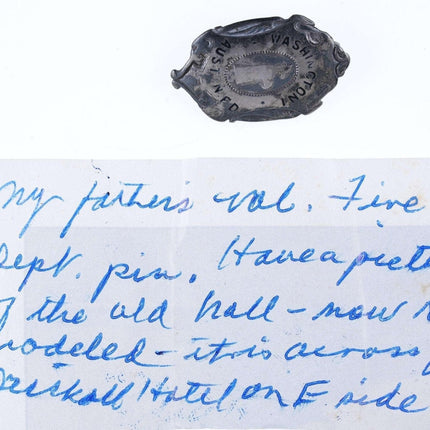 WASHINGTON 1
AUST
My father's vol. Fire
Dept. pin. Have a pict
of the old hall - now
modeled - it is across
Driskall Hotel on E side